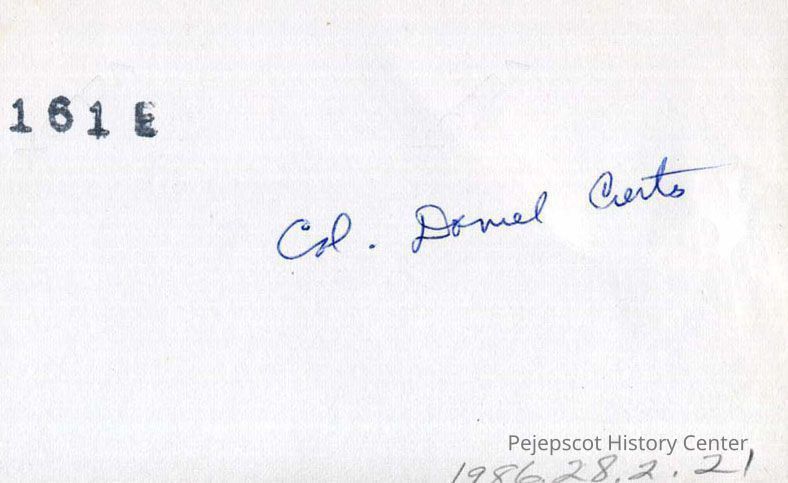 161E
Col. Daniel
Pejepscot History Center
1986.28.2.21